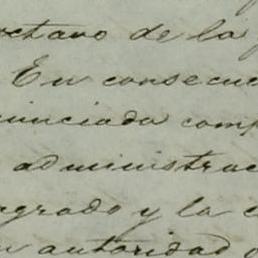 octavo de la
En consecue
unciada comp
administrac
agrado y la
autoridad